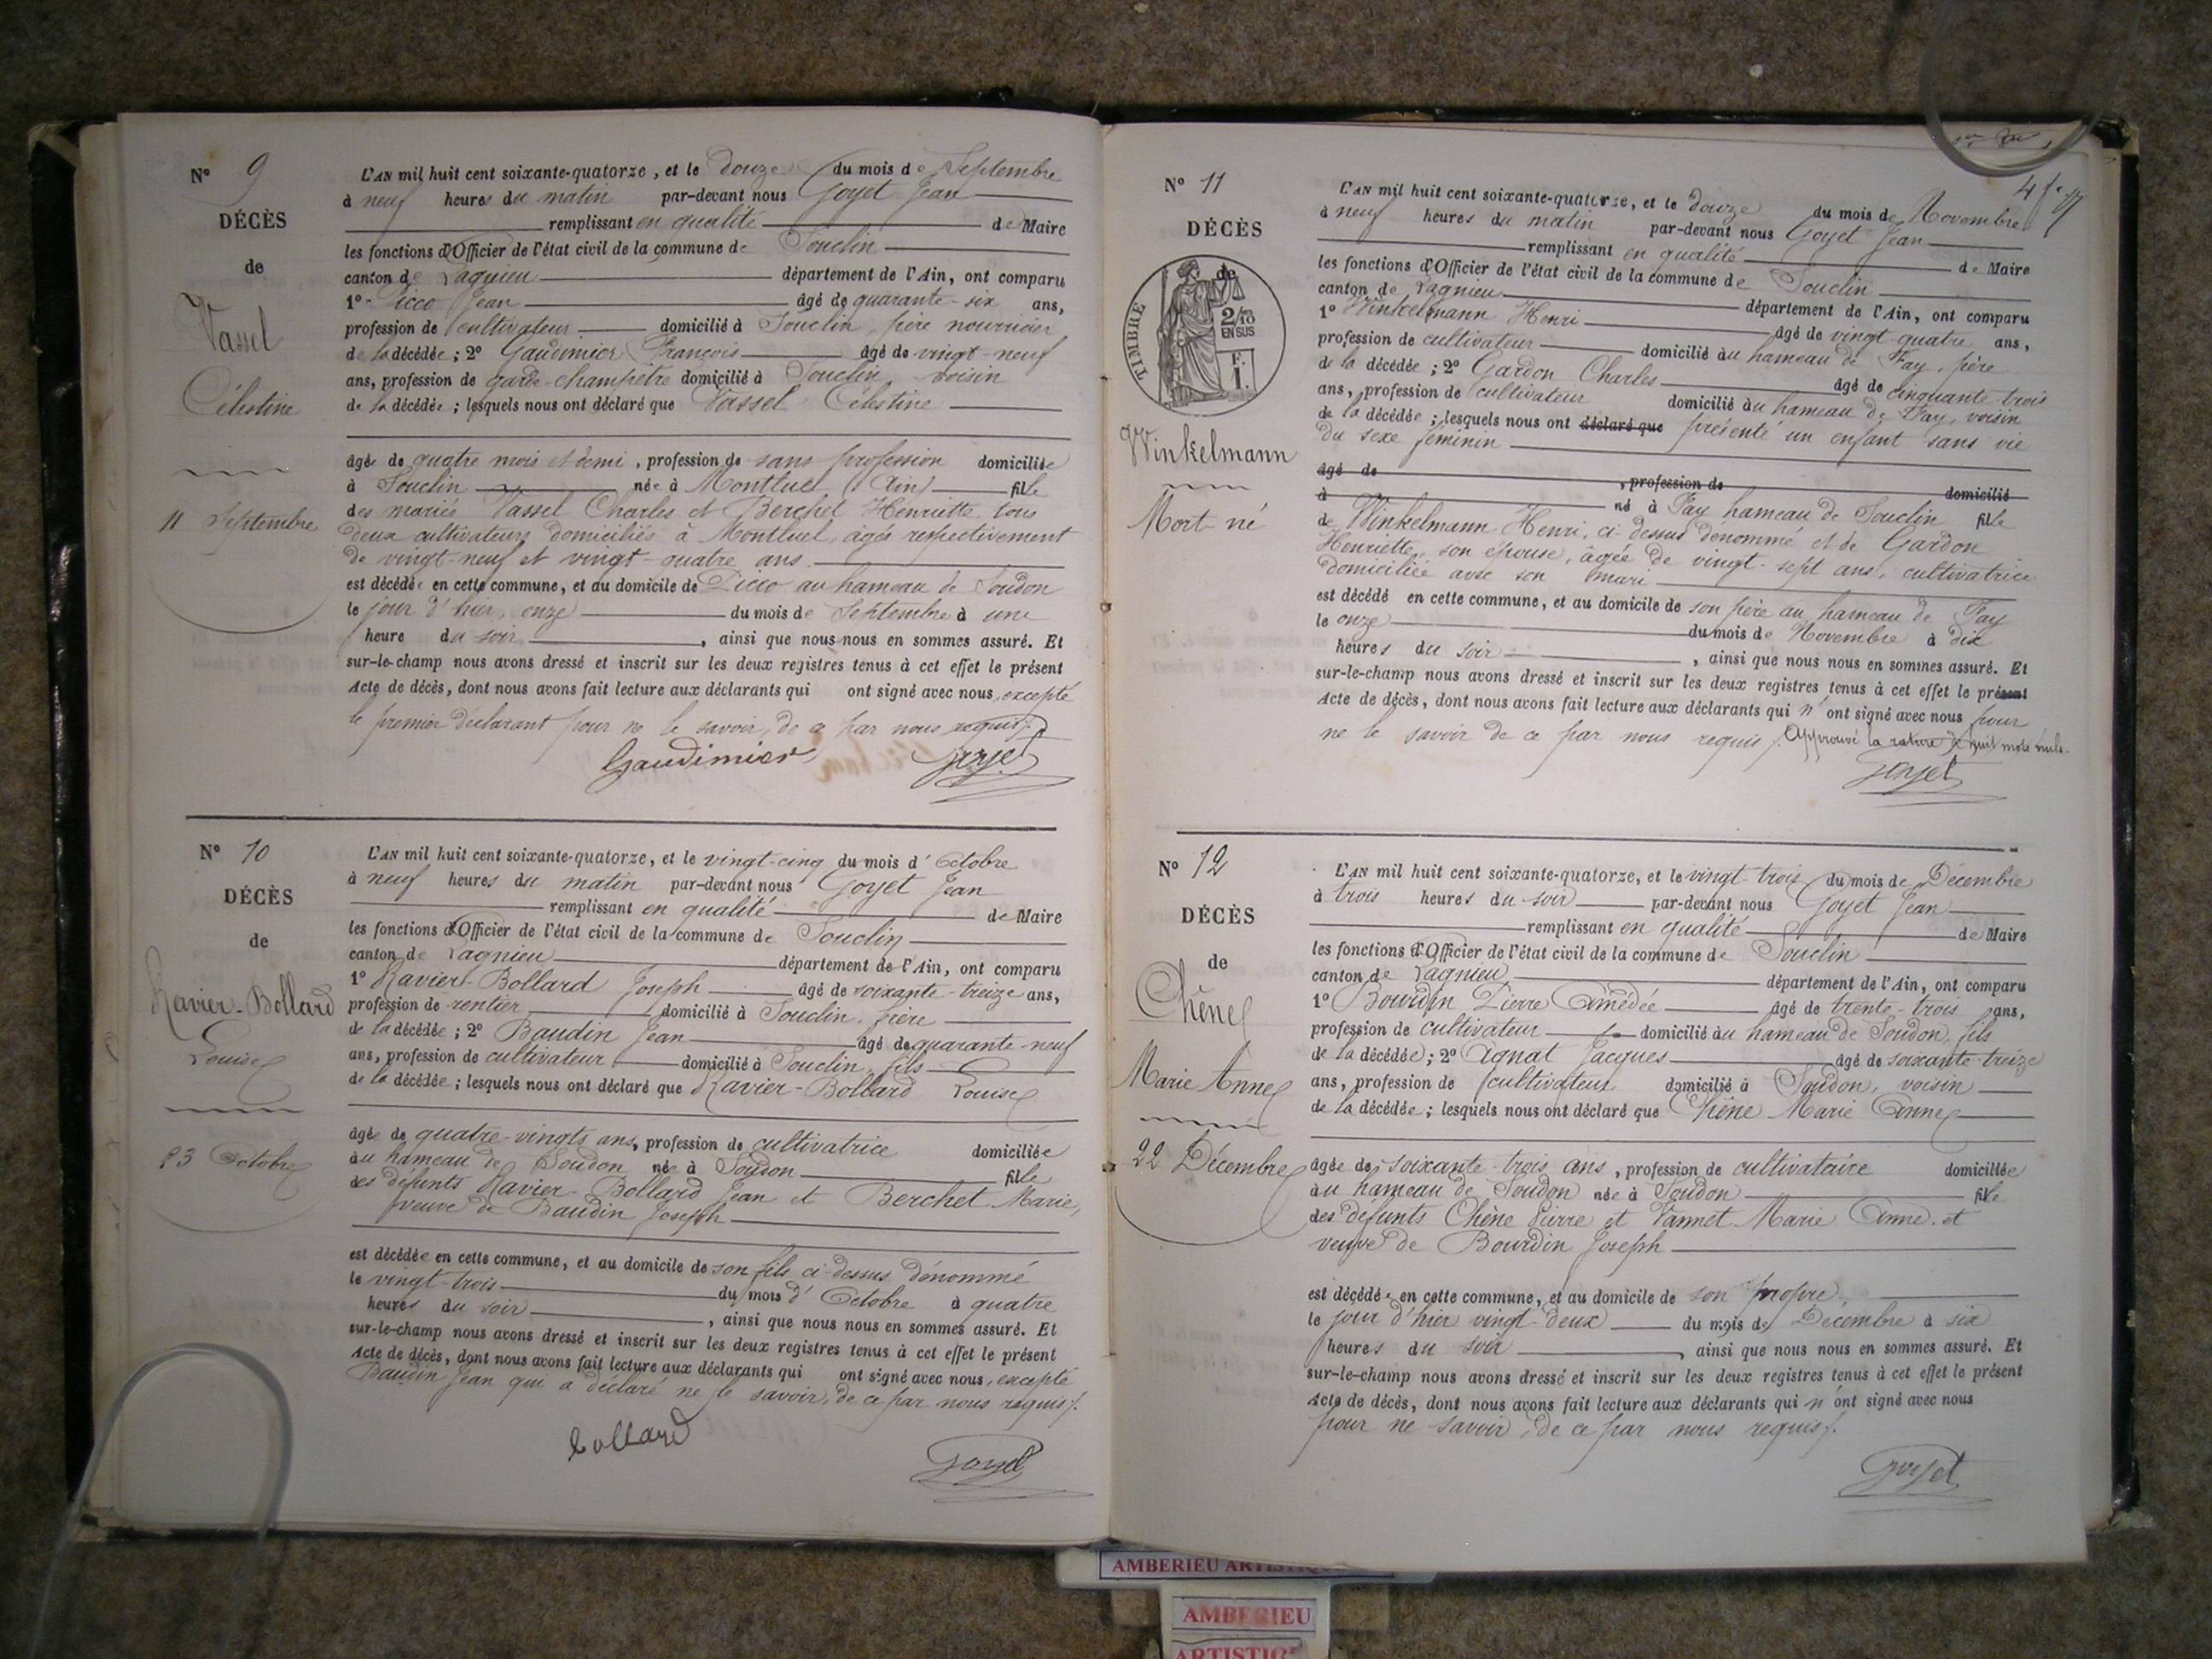 N° 9
DÉCÈS
de
Vassel
Célestine
11 Septembre
L'AN mil huit cent soixante-quatorze, et le douze du mois de Septembre
à neuf heures du matin par-devant nous Goyet Jean
remplissant en qualité de Maire
les fonctions d'Officier de l'état civil de la commune de Souclin
canton de Lagnieu département de l'Ain, ont comparu
1° Picco Jean âgé de quarante-six ans,
profession de cultivateur domicilié à Souclin, père nourricier
de la décédée ; 2° Gaudimier François âgé de vingt-neuf
ans, profession de garde-champêtre domicilié à Souclin voisin
de la décédée ; lesquels nous ont déclaré que Vassel Célestine
âgée de quatre mois et demi, profession de sans profession domiciliée
à Souclin née à Montluel (Ain) fille
des mariés Vassel Charles et Berchet Henriette tous
deux cultivateurs domiciliés à Montluel, âgés respectivement
de vingt-neuf et vingt-quatre ans
est décédée en cette commune, et au domicile de Picco au hameau de Soudon
le jour d'hier, onze du mois de Septembre à une
heure du soir, ainsi que nous nous en sommes assuré. Et
sur-le-champ nous avons dressé et inscrit sur les deux registres tenus à cet effet le présent
Acte de décès, dont nous avons fait lecture aux déclarants qui ont signé avec nous, excepté
le premier déclarant pour ne le savoir, de ce par nous requis.
Gaudimier Goyet
N° 10
DÉCÈS
de
Ravier-Bollard
Louise
23 Octobre
L'AN mil huit cent soixante-quatorze, et le vingt-cinq du mois d'Octobre
à neuf heures du matin par-devant nous Goyet Jean
remplissant en qualité de Maire
les fonctions d'Officier de l'état civil de la commune de Souclin
canton de Lagnieu département de l'Ain, ont comparu
1° Ravier-Bollard Joseph âgé de soixante-treize ans,
profession de rentier domicilié à Souclin, frère
de la décédée ; 2° Baudin Jean âgé de quarante-neuf
ans, profession de cultivateur domicilié à Souclin, fils
de la décédée ; lesquels nous ont déclaré que Ravier-Bollard Louise
âgée de quatre-vingts ans, profession de cultivatrice domiciliée
au hameau de Soudon née à Soudon fille
des défunts Ravier-Bollard Jean et Berchet Marie,
veuve de Baudin Joseph
est décédée en cette commune, et au domicile de son fils ci-dessus dénommé
le vingt-trois du mois d'Octobre à quatre
heures du soir, ainsi que nous nous en sommes assuré. Et
sur-le-champ nous avons dressé et inscrit sur les deux registres tenus à cet effet le présent
Acte de décès, dont nous avons fait lecture aux déclarants qui ont signé avec nous, excepté
Baudin Jean qui a déclaré ne le savoir, de ce par nous requis.
bollard
Goyet
4 f.
N° 11
DÉCÈS
de
TIMBRE
2/10
EN SUS
F.
1.
Winkelmann
Mort-né
L'AN mil huit cent soixante-quatorze, et le douze du mois de Novembre
à neuf heures du matin par-devant nous Goyet Jean
remplissant en qualité de Maire
les fonctions d'Officier de l'état civil de la commune de Souclin
canton de Lagnieu département de l'Ain, ont comparu
1° Winkelmann Henri âgé de vingt-quatre ans,
profession de cultivateur domicilié au hameau de Fay, père
de la décédée ; 2° Gardon Charles âgé de cinquante-trois
ans, profession de cultivateur domicilié au hameau de Fay, voisin
de la décédée ; lesquels nous ont déclaré que présenté un enfant sans vie
du sexe féminin
âgé de , profession de domicilié
à né à Fay hameau de Souclin fille
de Winkelmann Henri, ci-dessus dénommé et de Gardon
Henriette, son épouse, âgée de vingt-sept ans, cultivatrice
domiciliée avec son mari
est décédé en cette commune, et au domicile de son père au hameau de Fay
le onze du mois de Novembre à dix
heures du soir, ainsi que nous nous en sommes assuré. Et
sur-le-champ nous avons dressé et inscrit sur les deux registres tenus à cet effet le présent
Acte de décès, dont nous avons fait lecture aux déclarants qui n'ont signé avec nous pour
ne le savoir de ce par nous requis. Approuvé la rature de huit mots nuls.
Goyet
N° 12
DÉCÈS
de
Chêne
Marie Anne
22 Décembre
L'AN mil huit cent soixante-quatorze, et le vingt-trois du mois de Décembre
à trois heures du soir par-devant nous Goyet Jean
remplissant en qualité de Maire
les fonctions d'Officier de l'état civil de la commune de Souclin
canton de Lagnieu département de l'Ain, ont comparu
1° Bourdin Pierre Amédée âgé de trente-trois ans,
profession de cultivateur domicilié au hameau de Soudon, fils
de la décédée ; 2° Agnat Jacques âgé de soixante-treize
ans, profession de cultivateur domicilié à Soudon, voisin
de la décédée ; lesquels nous ont déclaré que Chêne Marie Anne
âgée de soixante-trois ans, profession de cultivatrice domiciliée
au hameau de Soudon née à Soudon fille
des défunts Chêne Pierre et Vannet Marie Anne et
veuve de Bourdin Joseph
est décédée en cette commune, et au domicile de son propre
le jour d'hier vingt-deux du mois de Décembre à six
heures du soir, ainsi que nous nous en sommes assuré. Et
sur-le-champ nous avons dressé et inscrit sur les deux registres tenus à cet effet le présent
Acte de décès, dont nous avons fait lecture aux déclarants qui n'ont signé avec nous
pour ne savoir, de ce par nous requis.
Goyet
AMBERIEU ARTISTIQUE
AMBERIEU
ARTISTIQUE